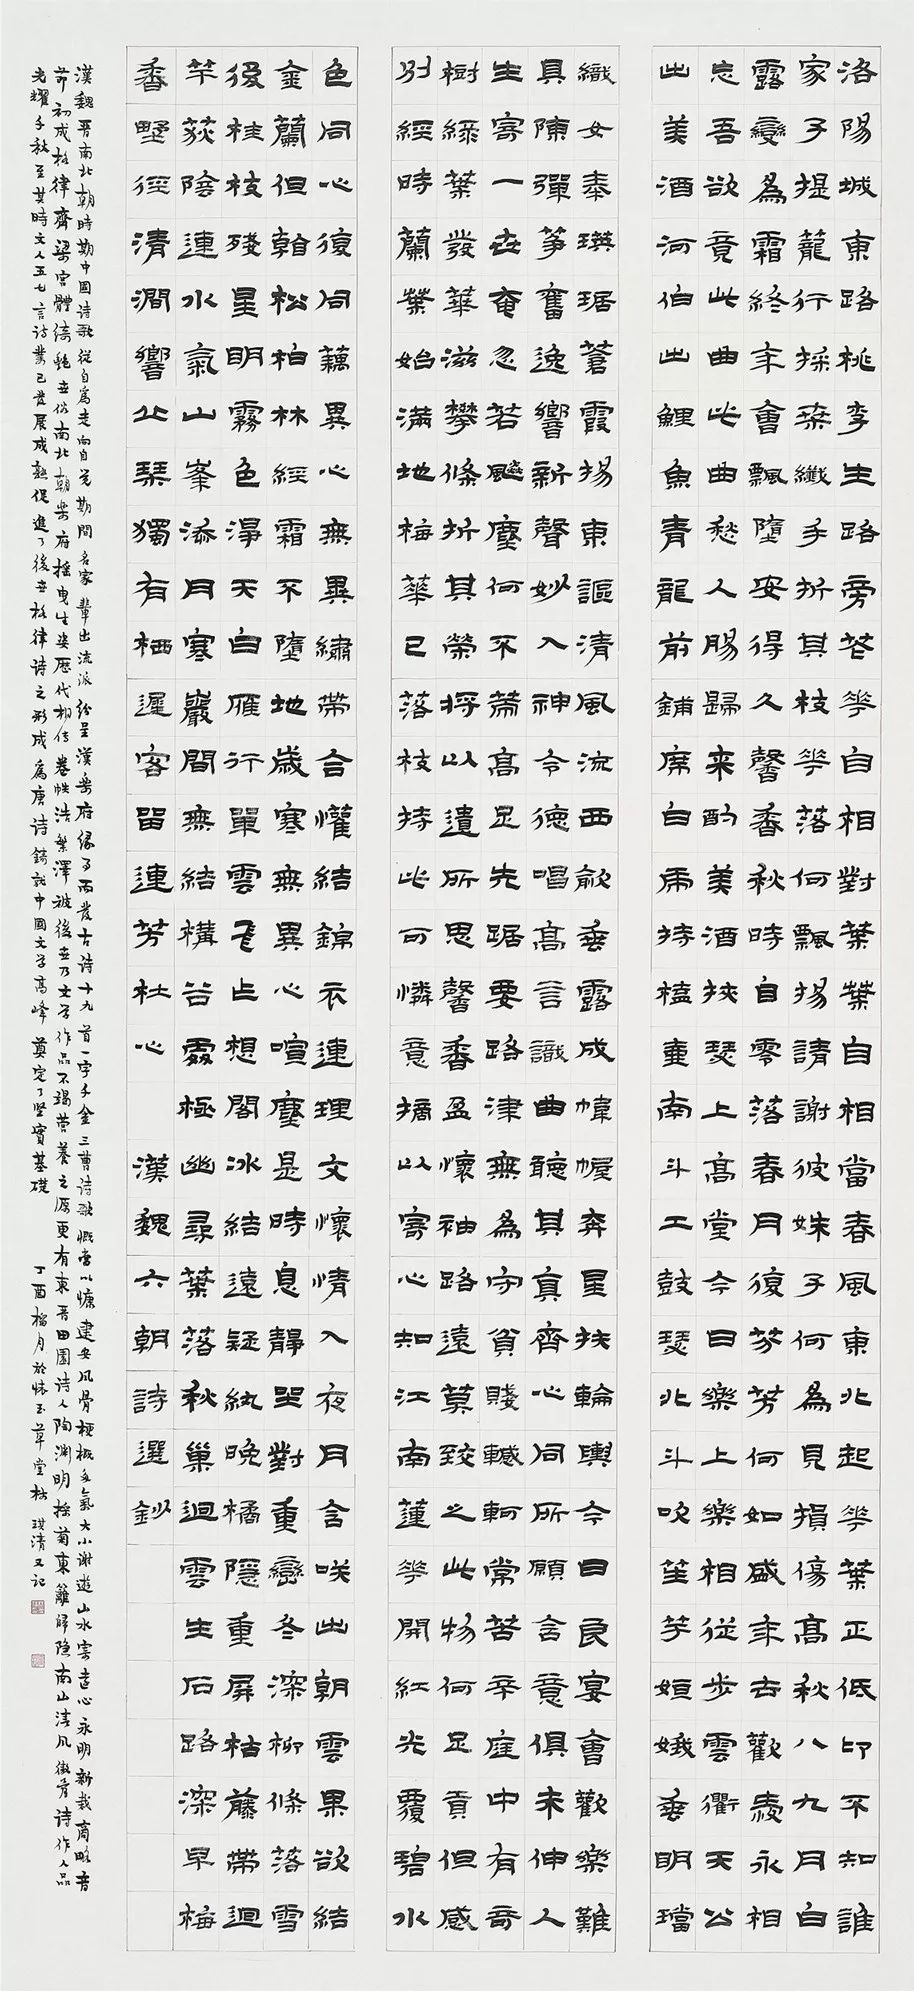 洛陽城東路桃李生路旁花華自相對葉葉自相當春風東北起華葉正低卬不知誰
家子提籠行採桑纖手折其枝華落何飄揚請謝彼姝子何為見損傷高秋八九月白
露變為霜終年會飄墮安得久馨香秋時自零落春月復芬芳何如盛年去歡愛永相
忘吾欲竟此曲此曲愁人腸歸来酌美酒挾瑟上高堂今日樂上樂相從步雲衢天公
出美酒河伯出鯉魚青龍前鋪席白虎持榼壺南斗工鼓瑟北斗吹笙竽姮娥垂明璫
織女奉瑛琚蒼霞揚東謳清風流西歈垂露成幃幄奔星扶輪輿今日良宴會歡樂難
具陳彈箏奮逸響新聲妙入神令德唱高言識曲聽其真齊心同所願含意俱未伸人
生寄一世奄忽若飈塵何不策高足先踞要路津無為守貧賤轗軻常苦辛庭中有奇
樹綠葉發華滋攀條折其榮將以遺所思馨香盈懷袖路遠莫致之此物何足貢但感
別經時蘭葉始滿地梅華已落枝持此可憐意摘以寄心知江南蓮華開紅光覆碧水
色同心復同藕異心無異繡帶合懽結錦衣連理文懷情入夜月含咲出朝雲果欲結
金蘭但看松柏林經霜不墮地歲寒無異心喧塵是時息靜坐對重巒冬深柳條落雪
後桂枝殘星明霧色淨天白雁行單雲飛乍想閣冰結遠疑紈晚橘隱重屏枯藤帶迴
竿荻陰連水氣山峯添月寒巖間無結構谷處極幽尋葉落秋巢迴雲生石路深早梅
香野徑清澗響丘琴獨有栖遲客留連芳杜心 漢魏六朝詩選鈔
漢魏晋南北朝時期中國詩歌從自為走向自覺期間名家輩出流派紛呈漢樂府緣事而發古詩十九首一字千金三曹詩歌慨當以慷建安風骨梗概多氣大小謝遊山水寄遠心永明新裁商略音
節初成格律齊梁宮體綺艷世俗南北朝樂府搖曳生姿歷代相傳卷帙浩繁澤被後世乃文學作品不竭營養之源更有東晋田園詩人陶淵明採菊東籬歸隐南山清風徽骨詩作人品
光耀千秋至其時文人五七言詩業已發展成熟促進了後世格律詩之形成為唐詩鑄就中國文學高峰奠定了堅實基礎 丁酉梅月於懷玉草堂林琪清又記